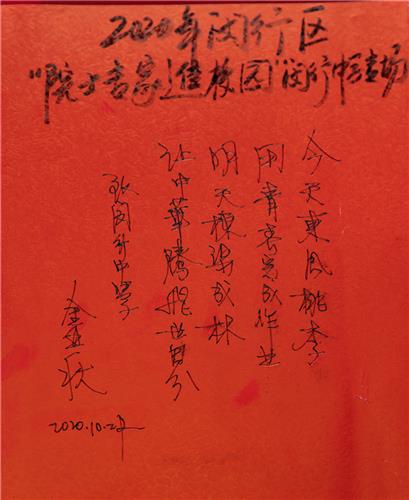 2020年闵行区
"院士专家进校园"闵行中学专场
今天东风桃李
用青春完成作业
明天栋梁成林
让中華腾飛世
致闵行中学
金亚秋
2020.10.27